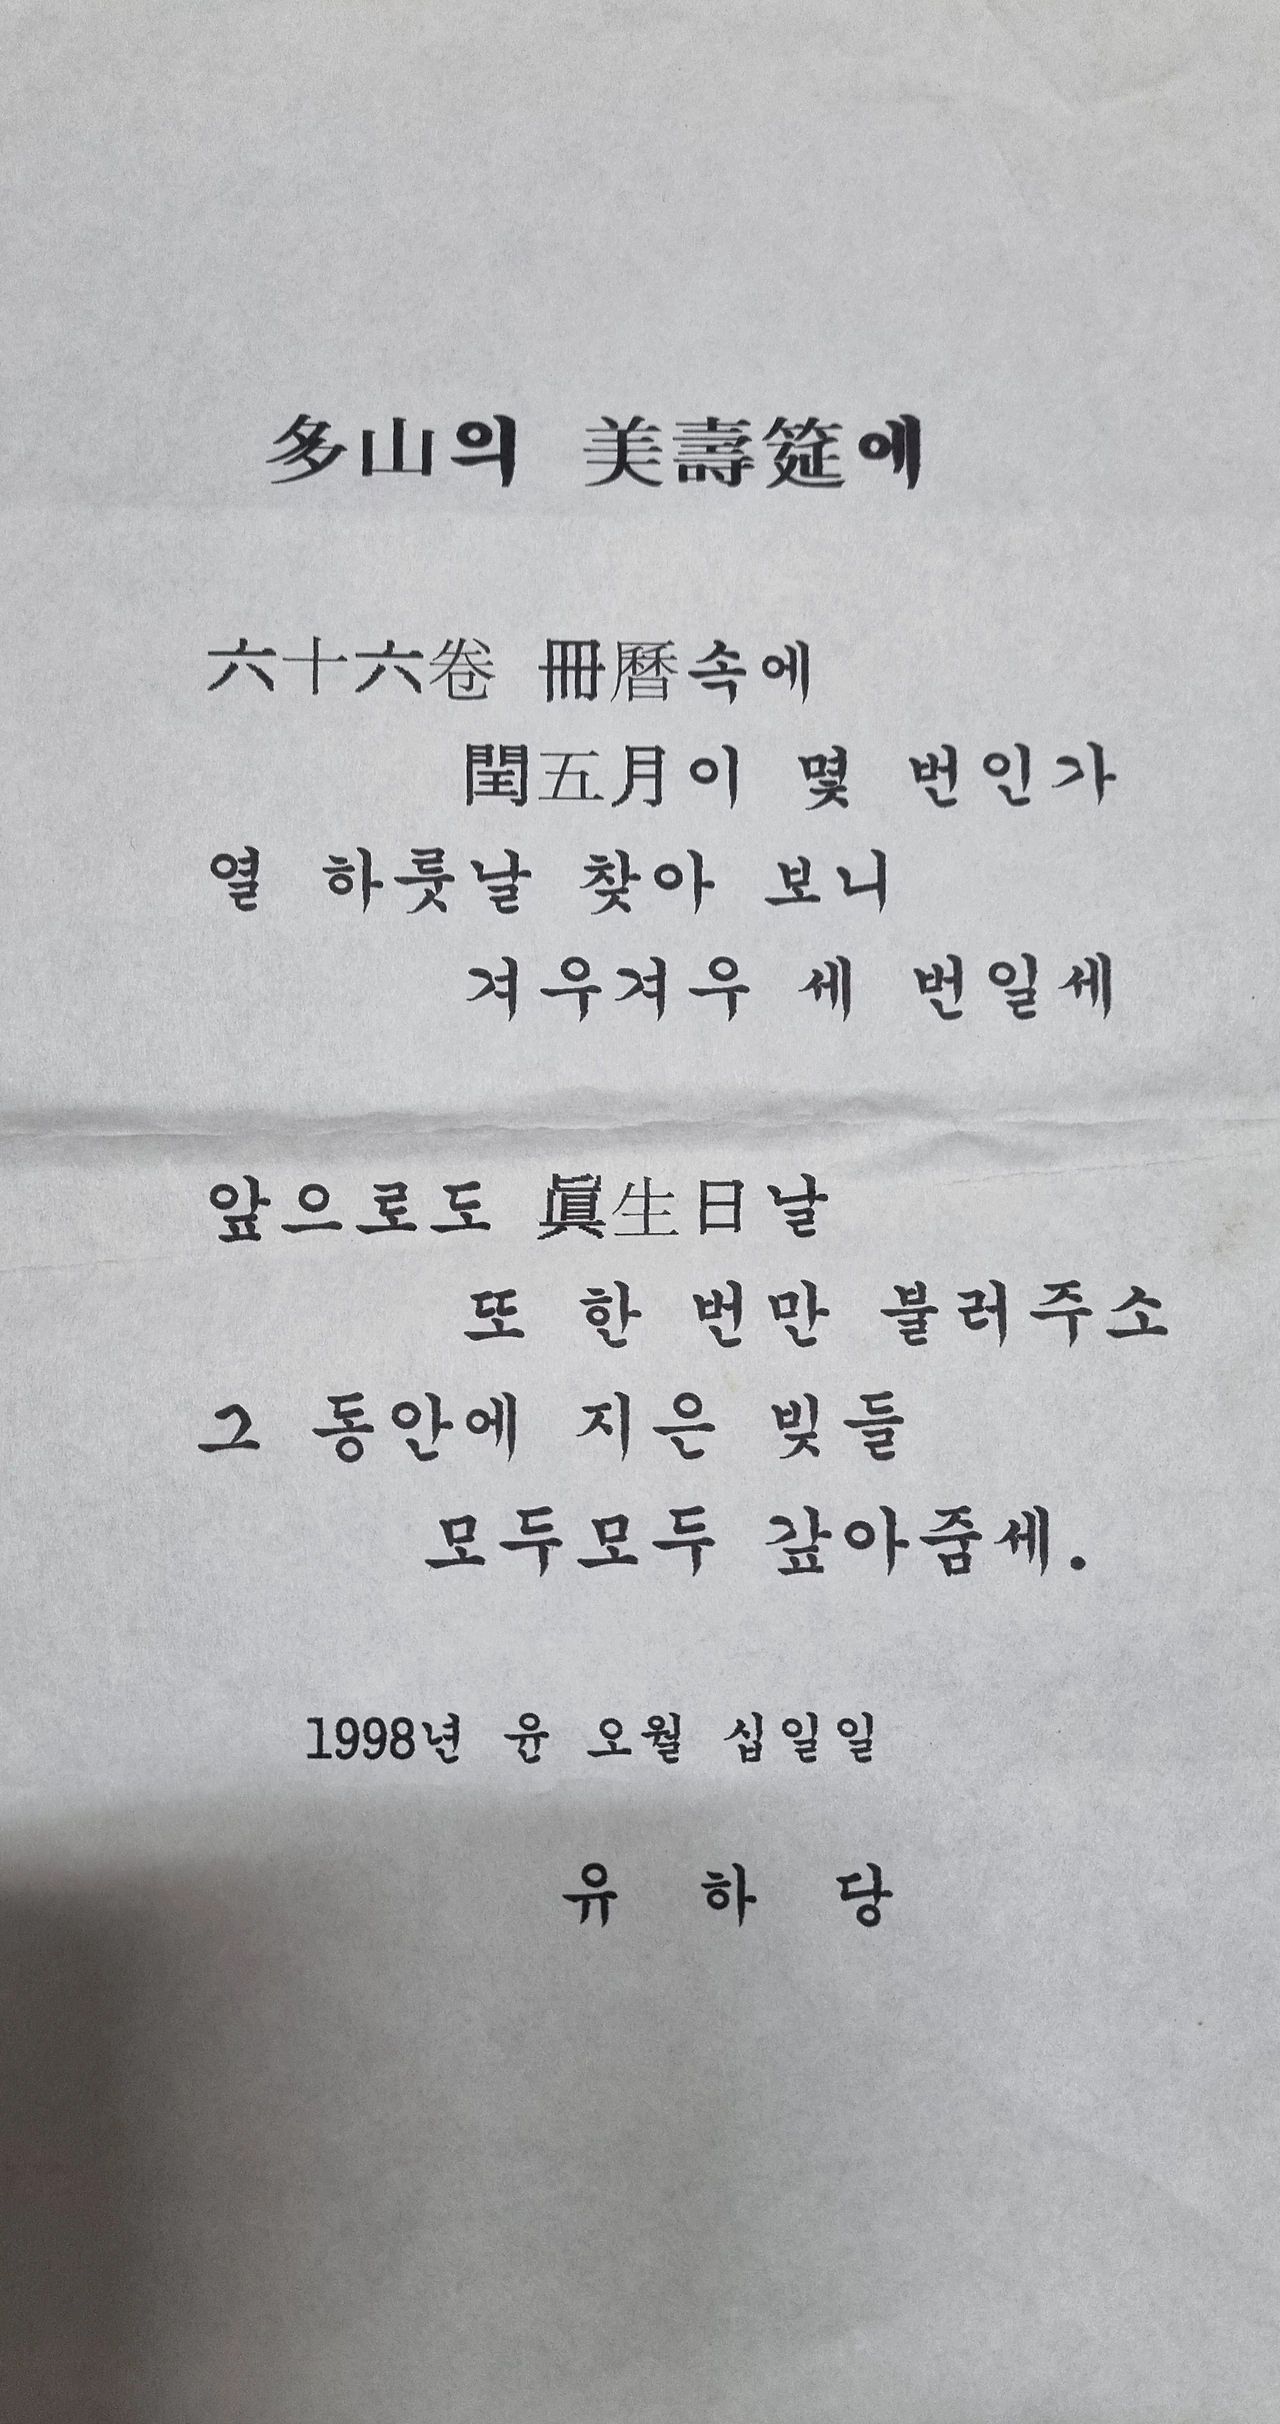 多山의 美壽筵에
六十六卷 冊曆속에
閏五月이 몇 번인가
열 하룻날 찾아 보니
겨우겨우 세 번일세
앞으로도 眞生日날
또 한 번만 불러주소
그 동안에 지은 빚들
모두모두 갚아줌세.
1998년 윤 오월 십일일
유 하 당